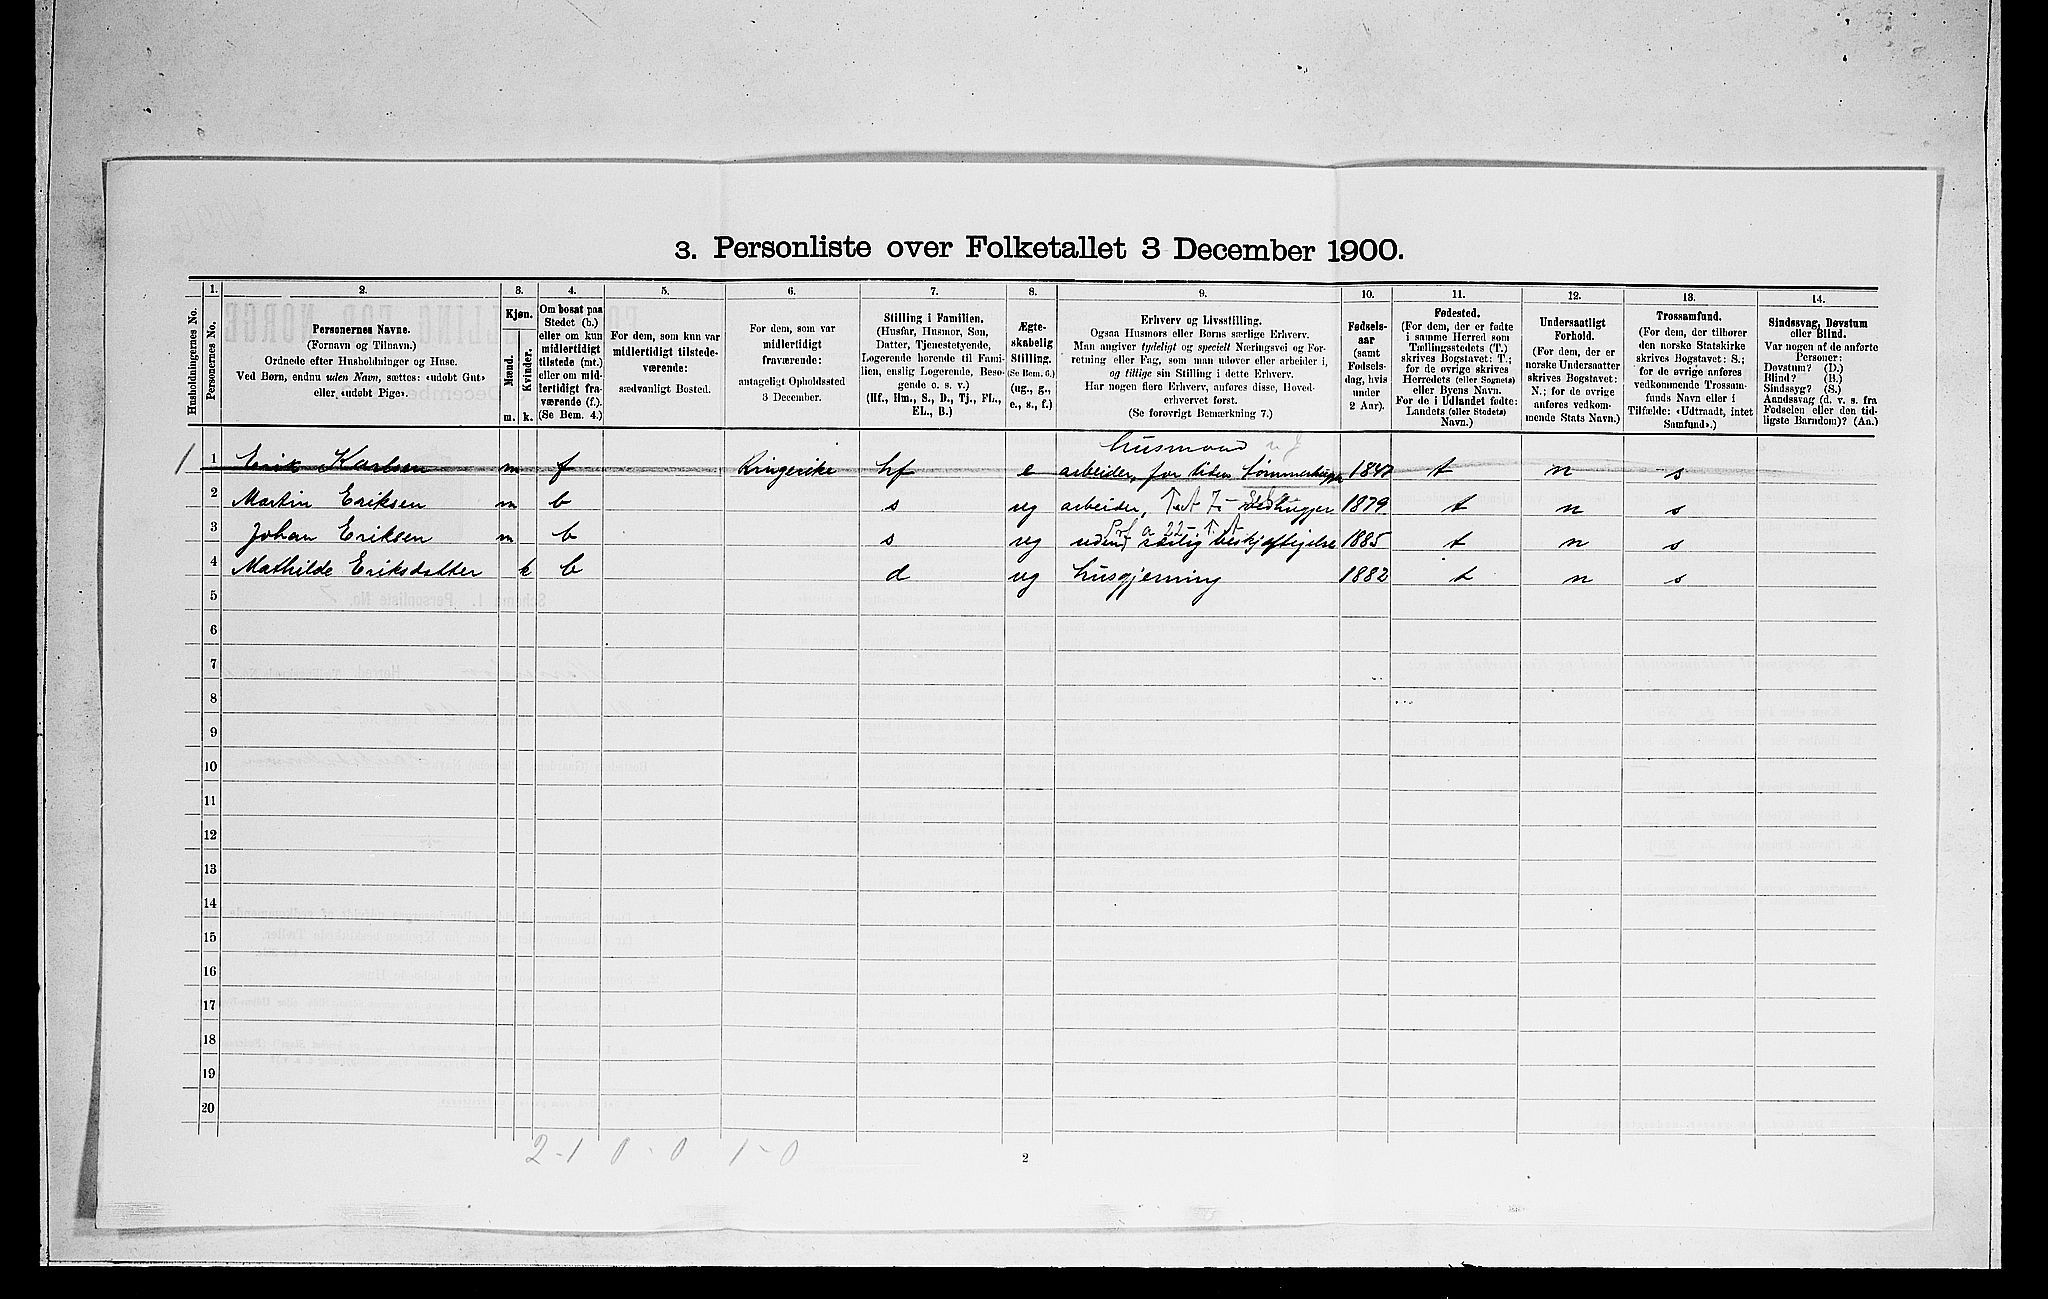 3. Personliste over Folketallet 3 December 1900.
1. 2. 3. 4. 5. 6. 7. 8. 9. 10. 11. 12. 13. 14.
Husholdningernes No.
Personernes No.
Personernes Navne.
(Fornavn og Tilnavn.)
Ordnede efter Husholdninger og Huse.
Ved Børn, endnu uden Navn, sættes: «udøbt Gut»
eller, «udøbt Pige».
Kjøn.
Mænd.
Kvinder.
m. k.
Om bosat paa
Stedet (b.)
eller om kun
midlertidigt
tilstede (mt.)
eller om mid-
lertidigt fra-
værende (f.).
(Se Bem. 4.)
For dem, som kun var
midlertidigt tilstede-
værende:
sædvanligt Bosted.
For dem, som var
midlertidigt
fraværende:
antageligt Opholdssted
3 December.
Stilling i Familien.
(Husfar, Husmor, Søn,
Datter, Tjenestetyende,
Logerende hørende til Fami-
lien, enslig Logerende, Besø-
gende o. s. v.)
(Hf., Hm., S., D., Tj., FL.,
EL., B.)
Ægte-
skabelig
Stilling.
(Se Bem. 6.)
(ug., g.,
e., s., f.)
Erhverv og Livsstilling.
Ogsaa Husmors eller Børns særlige Erhverv.
Man angiver tydeligt og specielt Næringsvei og For-
retning eller Fag, som man udøver eller arbeider i,
og tillige sin Stilling i dette Erhverv.
Har nogen flere Erhverv, anføres disse, Hoved-
erhvervet først.
(Se forøvrigt Bemærkning 7.)
Fødsels-
aar
(samt
Fødsels-
dag, hvis
under
2 Aar).
Fødested.
(For dem, der er fødte
i samme Herred som
Tællingsstedets (T.)
skrives Bogstavet: T.;
for de øvrige skrives
Herredets (eller Sognets)
eller Byens Navn.
For de i Udlandet fødte:
Landets (eller Stedets)
Navn.)
Undersaatligt
Forhold.
(For dem, der er
norske Undersaatter
skrives Bogstavet:
N.; for de øvrige
anføres vedkom-
mende Stats Navn.)
Trossamfund.
(For dem, der tilhører
den norske Statskirke
skrives Bogstavet: S.;
for de øvrige anføres
vedkommende Trossam-
funds Navn eller i
Tilfælde: «Udtraadt, intet
Samfund».)
Sindssvag, Døvstum
eller Blind.
Var nogen af de anførte
Personer:
Døvstum? (D.)
Blind? (B.)
Sindssyg? (S.)
Aandssvag (d. v. s. fra
Fødselen eller den tid-
ligste Barndom)? (Aa.)
husmand
1 1 Erik Karlsen m f Ringerike hf e arbeider, for tiden tømmerhugger 1847 t n s
2 Martin Eriksen m b s ug arbeider, vedhugger 1879 t n s
3 Johan Eriksen m b s ug uden særlig beskjæftigelse 1885 t n s
4 Mathilde Eriksdatter k b d ug husgjerning 1882 t n s
5
6
7
8
9
10
11
12
13
14
15
16
17
18
19
20
2-1 0-0 1-0
2